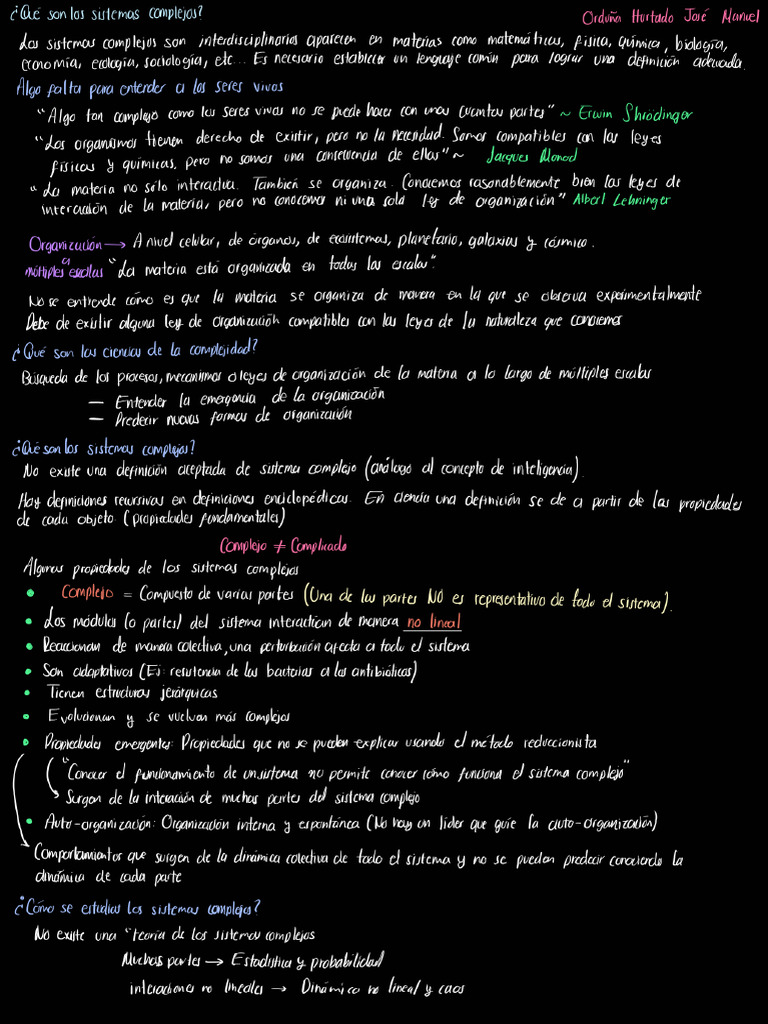 ¿Qué son los sistemas complejos?
Orduña Hurtado José Manuel
Los sistemas complejos son interdisciplinarios aparecen en materias como matemáticas, física, química, biología,
economía, ecología, sociología, etc... Es necesario establecer un lenguaje común para lograr una definición adecuada.
Algo falta para entender a los seres vivos
"Algo tan complejo como los seres vivos no se puede hacer con unas cuantas partes" ~ Erwin Shrödinger
"Los organismos tienen derecho de existir, pero no la necesidad. Somos compatibles con las leyes
físicas y químicas, pero no somos una consecuencia de ellas" ~ Jacques Monod
"La materia no sólo interactua. También se organiza. Conocemos rasonablemente bien las leyes de
interacción de la materia, pero no conocemos ni una sola ley de organización" Albert Lehninger
Organización → A nivel celular, de órganos, de ecosistemas, planetario, galaxias y cósmico.
a
múltiples escalas "La materia está organizada en todas las escalas".
No se entiende cómo es que la materia se organiza de manera en la que se observa experimentalmente
Debe de existir alguna ley de organización compatibles con las leyes de la naturaleza que conocemos
¿Qué son las ciencias de la complejidad?
Búsqueda de los procesos, mecanismos o leyes de organización de la materia a lo largo de múltiples escalas
— Entender la emergencia de la organización
— Predecir nuevas formas de organización
¿Qué son los sistemas complejos?
No existe una definición aceptada de sistema complejo (análogo al concepto de inteligencia).
Hay definiciones recursivas en definiciones enciclopédicas. En ciencia una definición se de a partir de las propiedades
de cada objeto (propiedades fundamentales)
Complejo ≠ Complicado
Algunas propiedades de los sistemas complejos
• Complejo = Compuesto de varias partes (Una de las partes NO es representativo de todo el sistema).
• Los módulos (o partes) del sistema interactúan de manera no lineal
• Reaccionan de manera colectiva, una perturbación afecta a todo el sistema
• Son adaptativos (Ej: resistencia de las bacterias a los antibióticos)
• Tienen estructuras jerárquicas
• Evolucionan y se vuelven más complejos
• Propiedades emergentes: Propiedades que no se pueden explicar usando el método reduccionista
"Conocer el funcionamiento de un sistema no permite conocer cómo funciona el sistema complejo"
Surgen de la interacción de muchas partes del sistema complejo
• Auto-organización: Organización interna y espontánea (No hay un líder que guíe la auto-organización)
Comportamientos que surgen de la dinámica colectiva de todo el sistema y no se pueden predecir conociendo la
dinámica de cada parte
¿Cómo se estudias los sistemas complejos?
No existe una "teoría de los sistemas complejos
Muchas partes → Estadística y probabilidad
interacciones no lineales → Dinámica no lineal y caos